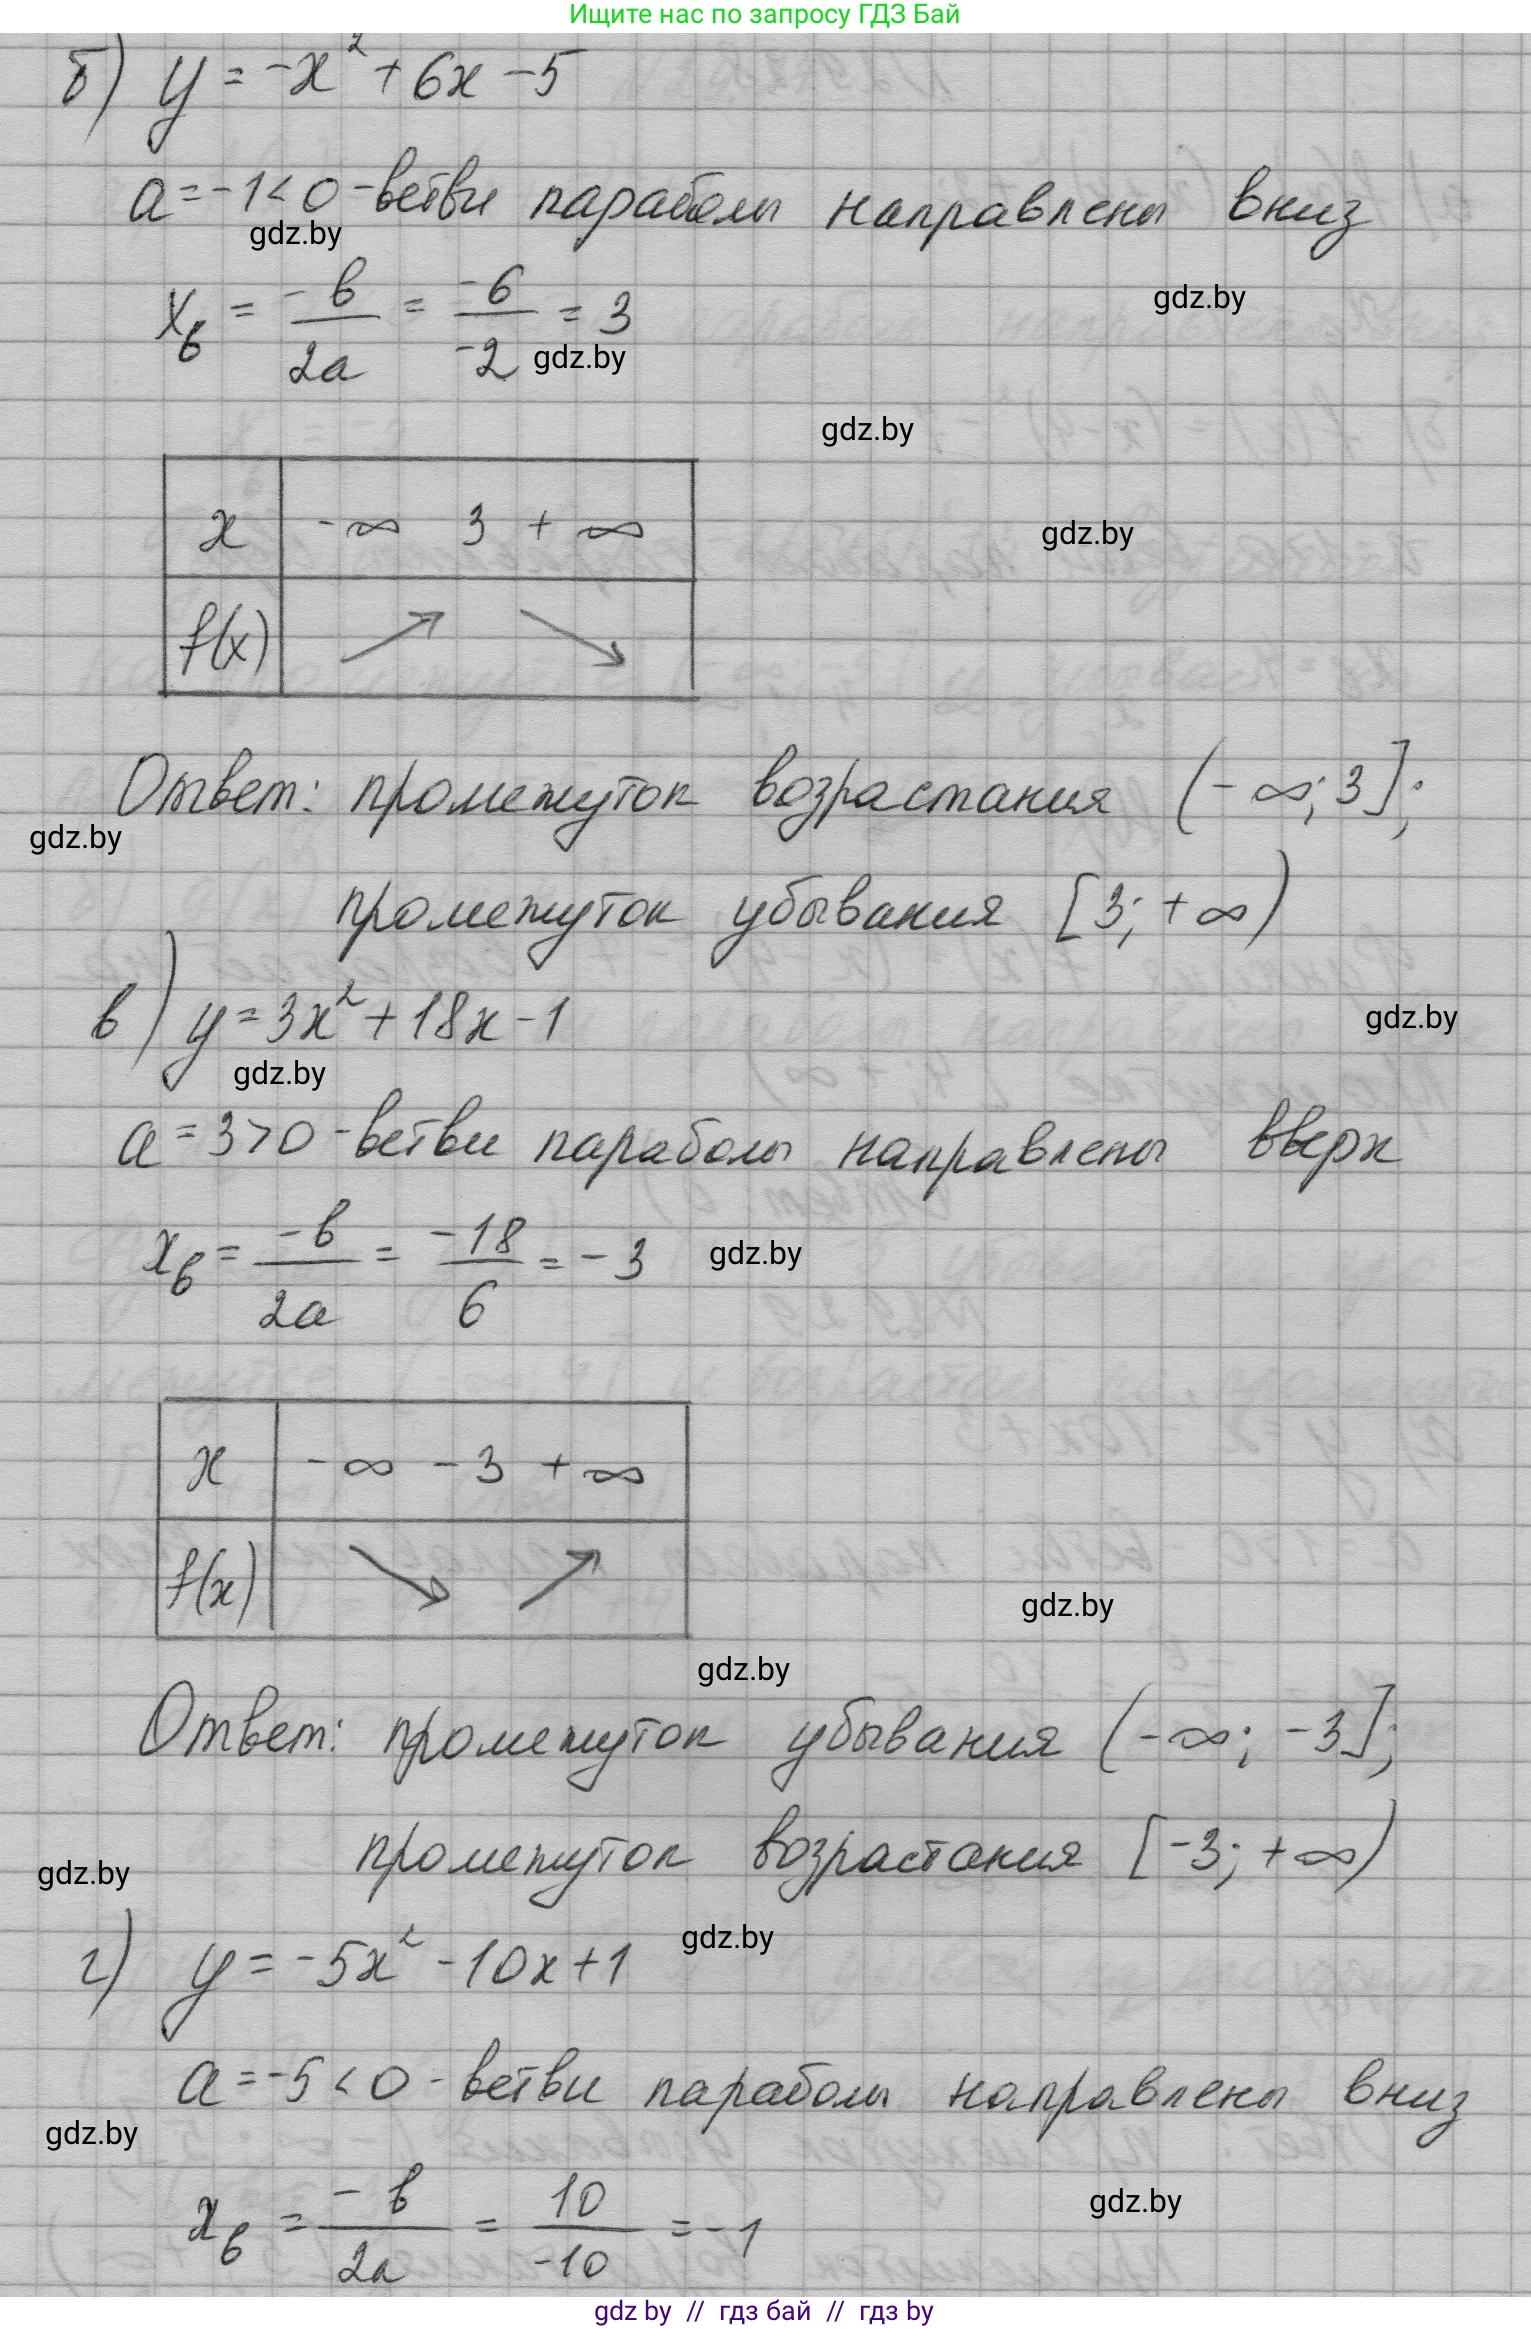 Ищите нас по запросу ГДЗ Бай
б) y = -x² + 6x - 5
a = -1 < 0 - ветви параболы направлены вниз
gdz.by
gdz.by
x_в = -в/2a = -6/-2 = 3
gdz.by
gdz.by
x -∞ 3 +∞
gdz.by
f(x) ↗ ↘
Ответ: промежуток возрастания (-∞; 3];
gdz.by
промежуток убывания [3; +∞)
в) y = 3x² + 18x - 1
gdz.by
gdz.by
a = 3 > 0 - ветви параболы направлены вверх
x_в = -в/2a = -18/6 = -3
gdz.by
x -∞ -3 +∞
f(x) ↘ ↗
gdz.by
gdz.by
Ответ: промежуток убывания (-∞; -3];
промежуток возрастания [-3; +∞)
gdz.by
gdz.by
г) y = -5x² - 10x + 1
a = -5 < 0 - ветви параболы направлены вниз
gdz.by
gdz.by
x_в = -в/2a = 10/-10 = -1
gdz by // гдз бай // гдз by